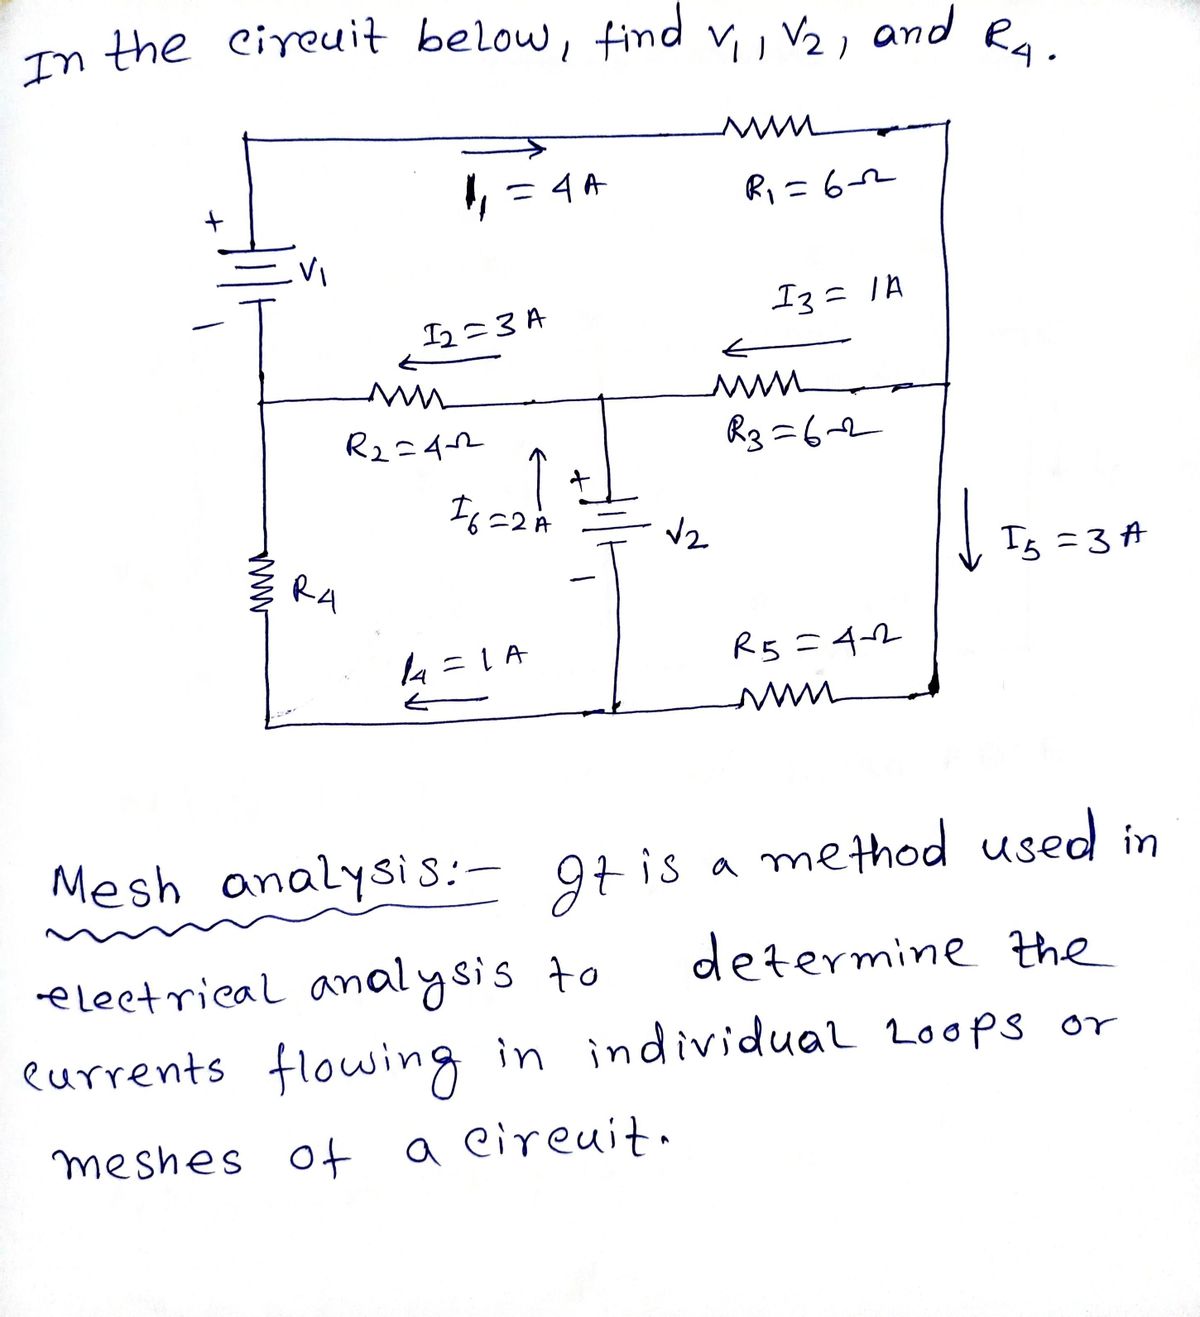 In the circuit below, find V₁, V₂, and R₄.
I₁ = 4A
R₁ = 6Ω
+
V₁
-
I₂ = 3A
I₃ = 1A
R₂ = 4Ω
R₃ = 6Ω
I₆ = 2A
+
V₂
-
I₅ = 3A
R₄
I₄ = 1A
R₅ = 4Ω
Mesh analysis:- It is a method used in
electrical analysis to determine the
currents flowing in individual loops or
meshes of a circuit.